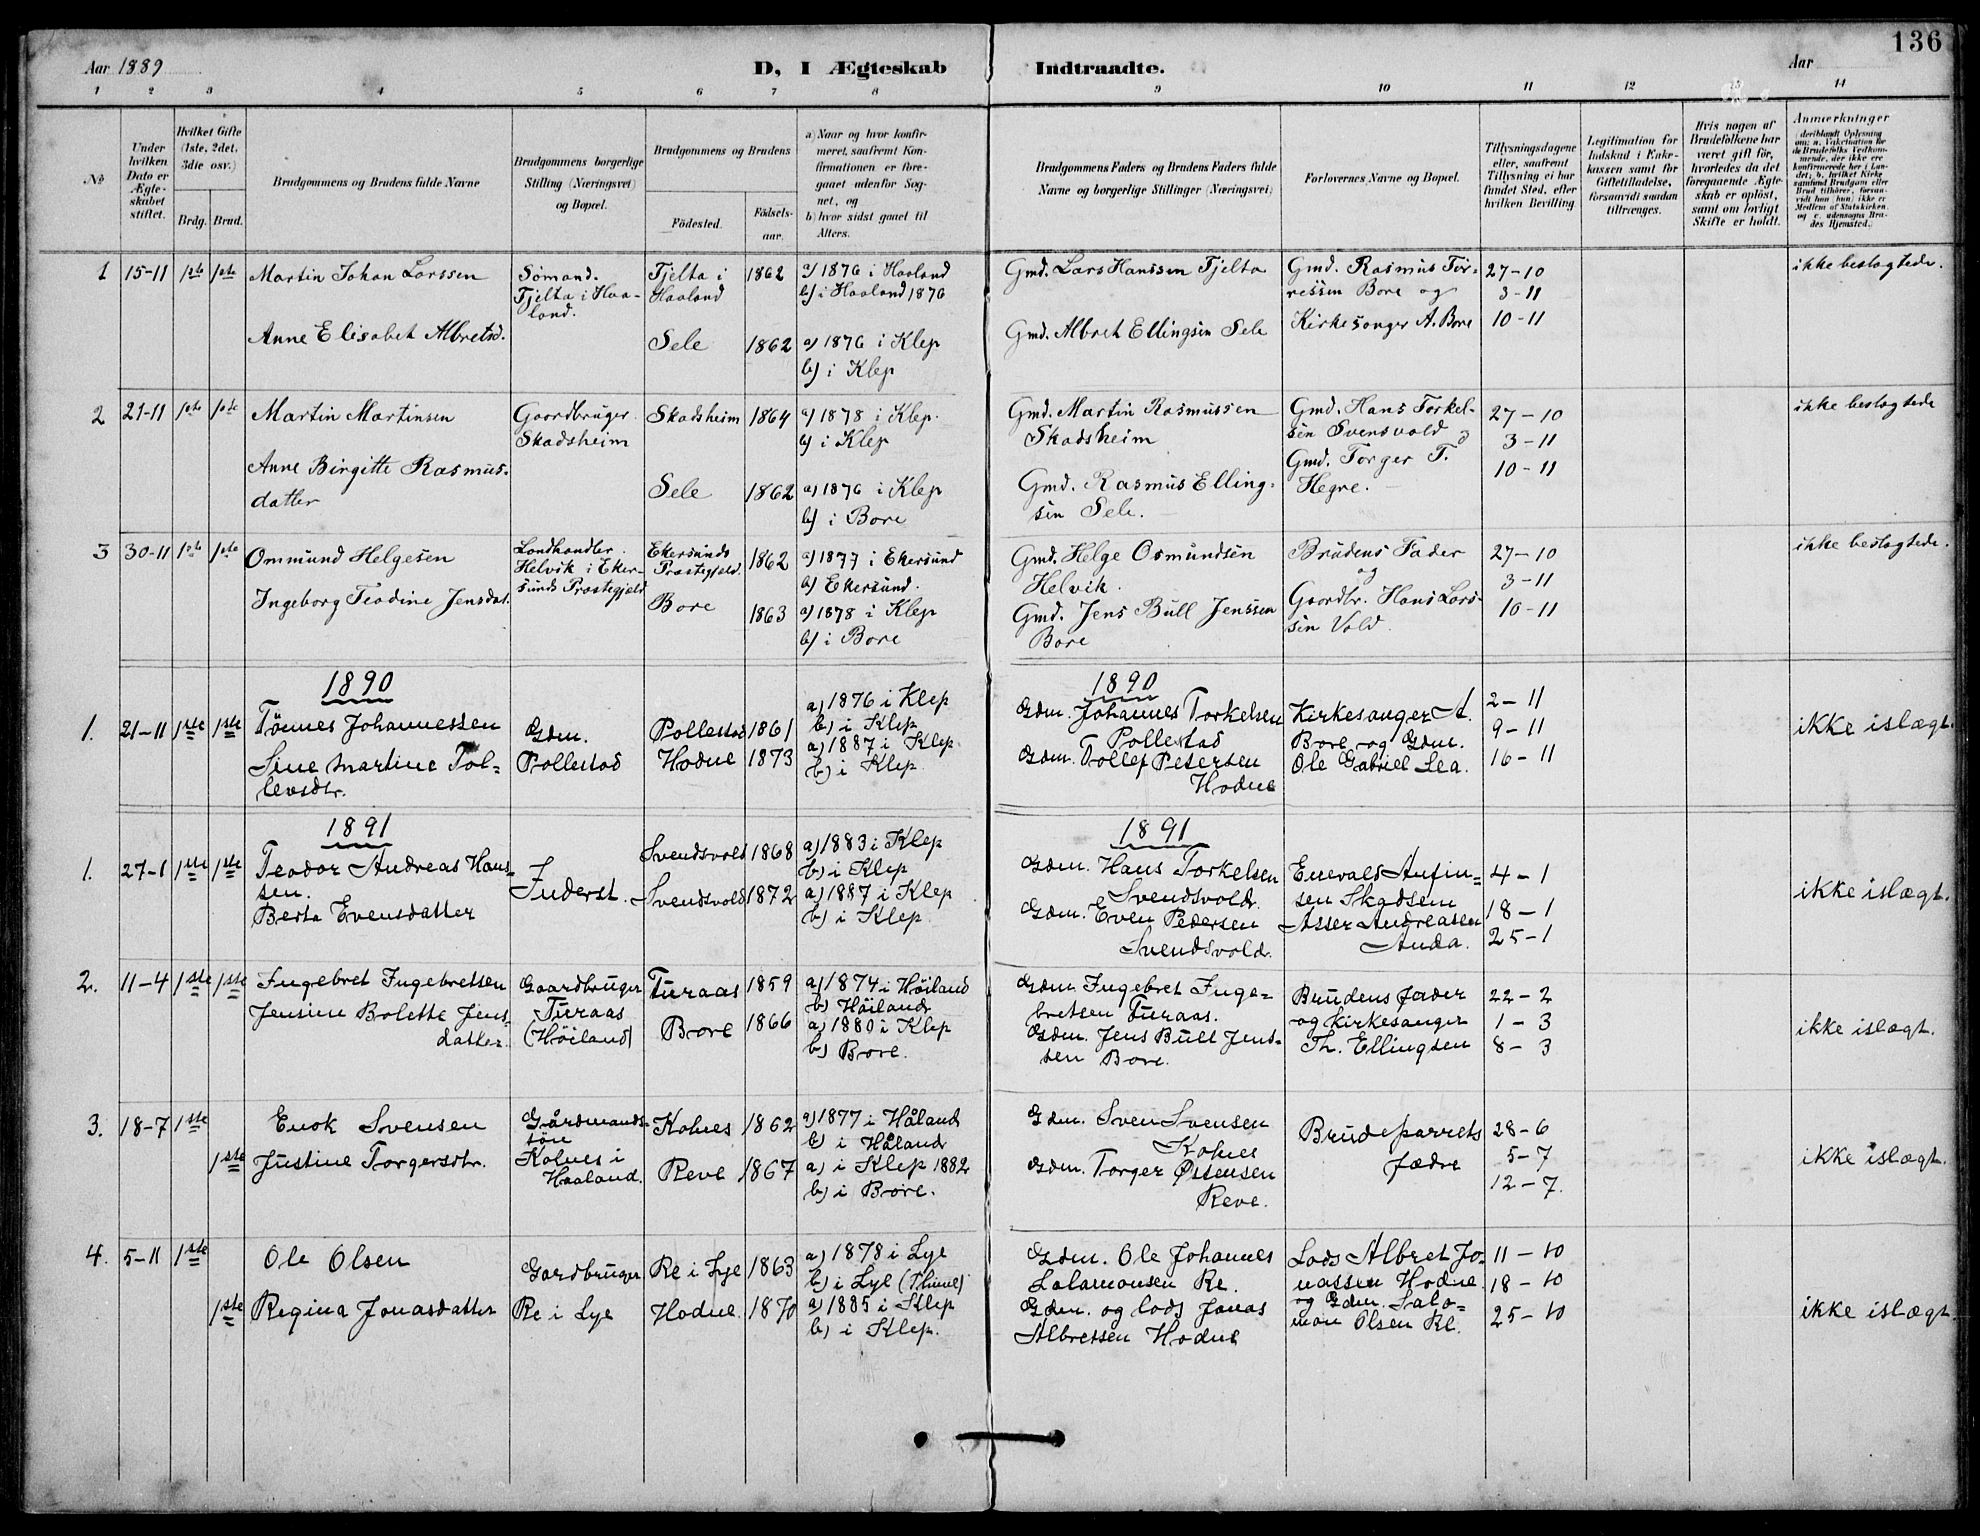 136
Aar 1889
D, I Ægteskab Indtraadte.
Aar
1 2 3 4 5 6 7 8 9 10 11 12 13 14
No
Under hvilken Dato er Ægteskabet stiftet.
Hvilket Gifte (1ste, 2det, 3die osv.)
Brdg. Brud.
Brudgommens og Brudens fulde Navne
Brudgommens borgerlige Stilling (Næringsvei) og Bopæl.
Brudgommens og Brudens
Födested. Födselsaar.
a) Naar og hvor konfirmeret, saafremt Konfirmationen er foregaaet udenfor Sognet, og
b) hvor sidst gaaet til Alters.
Brudgommens Faders og Brudens Faders fulde Navne og borgerlige Stillinger (Næringsvei)
Forlovernes Navne og Bopæl.
Tillysningsdagene eller, saafremt Tillysning ei har fundet Sted, efter hvilken Bevilling
Legitimation for Indskud i Enkekassen samt for Giftetilladelse, forsaavidt saadan tiltrænges.
Hvis nogen af Brudefolkene har været gift för, hvorledes da det foregaaende Ægteskab er oplöst, samt om lovligt Skifte er holdt.
Anmærkninger (deriblandt Oplysning om: a. Vaccination for de Brudefolks Vedkommende, der ikke ere konfirmerede her i Landet; b. hvilket Kirkesamfund Brudgom eller Brud tilhörer, forsaavidt han (hun) ikke er Medlem af Statskirken, og c. udensogns Brudes Hjemsted.)
1 15-11 1ste 1ste Martin Johan Larssen
Anne Elisabet Albretsd.
Sømand.
Tjelta i Haa-
land.
Tjelta i
Haaland 1862
Sele 1862
a) 1876 i Haaland
b) i Haaland 1876
a) 1876 i Klep
b) i Klep
Gmd. Lars Hanssen Tjelta
Gmd. Albret Ellingsen Sele
Gmd. Rasmus Tor-
ressen Bore og
Kirkesanger A. Bore
27-10
3-11
10-11
ikke beslagtede.
2 21-11 1ste 1ste Martin Martinsen
Anne Birgitte Rasmus-
datter
Gaardbruger
Skadsheim
Skadsheim 1864
Sele 1862
a) 1878 i Klep.
b) i Klep
a) 1876 i Klep
b) i Bore
Gmd. Martin Rasmussen
Skadsheim
Gmd. Rasmus Elling-
sen Sele.
Gmd. Hans Torkel-
sen Svensvold og
Gmd. Torger T.
Hegre.
27-10
3-11
10-11
ikke beslagtede
3 30-11 1ste 1ste Ommund Helgesen
Ingeborg Teodine Jensdat.
Landhandler.
Helvik i Eker-
sunds Prastegjeld
Ekersunds
Prastegjeld. 1862
Bore 1863
a) 1877 i Ekersund
b) Ekersund.
a) 1878 i Klep
b) i Bore
Gmd. Helge Osmundsen
Helvik.
Gmd. Jens Bull Jenssen
Bore
Brudens Fader
og
Gaardbr. Hans Lars-
sen Vold.
27-10
3-11
10-11
ikke beslagtede.
1890 1890
1. 21-11 1ste 1ste Tönnes Johannessen
Sine Martine Tol-
levsdtr.
Gdm.
Pollestad
Pollestad 1861
Hodne 1873
a) 1876 i Klep
b) i Klep
a) 1887 i Klep.
b) i Klep.
Gdm. Johannes Torkelsen
Pollestad
Gdm. Tollef Petersen
Hodne
Kirkesanger A.
Bore og Gdm.
Ole Gabriel Lea.
2-11
9-11
16-11
ikke islægt.
1891 1891
1. 27-1 1ste 1ste Teodor Andreas Hans-
sen.
Berta Evensdatter
Inderst.
Svendsvold 1868
Svendsvold 1872
a) 1883 i Klep
b) i Klep
a) 1887 i Klep
b) i Klep.
Gdm. Hans Torkelsen
Svendsvold.
Gdm. Even Pedersen
Svendsvold.
Enevald Aufin-
sen Skadsem
Asser Andreasen
Anda.
4-1
18-1
25-1
ikke islægt.
2. 11-4 1ste 1ste Ingebret Ingebretsen
Jensine Bolette Jens-
datter.
Gaardbruger
Turaas
(Höiland)
Turaas 1859
Bore 1866
a) 1874 i Höiland
b) Höiland
a) 1880 i Klep
b) Bore.
Gdm. Ingebret Inge-
bretsen Turaas.
Gdm. Jens Bull Jens-
sen Bore.
Brudens fader
og kirkesanger
Th. Ellingsen
22-2
1-3
8-3
ikke islægt.
3. 18-7 1ste Enok Svensen
1ste Justine Torgersdtr.
Gårdmands-
sön
Kolnes i
Haaland.
Kolnes 1862
Reve 1867
a) 1877 i Håland
b) i Håland
a) i Klep 1882
b) i Bore.
Gdm. Sven Svensen
Kolnes
Gdm. Torger Østensen
Reve.
Brudeparrets
fædre
28-6
5-7
12-7.
ikke islægt.
4. 5-11 1ste Ole Olsen
1ste Regina Jonasdatter
Gardbruger
Re i Lye
Re i Lye 1863
Hodne. 1870
a) 1878 i Lye
b) i Lye (Thime)
a) 1885 i Klep
b) i Klep.
Gdm. Ole Johannes
Salamonsen Re.
Gdm. og lods Jonas
Albretsen Hodne
Lods Albret Jo-
nassen Hodne.
og Gdm. Salo-
mon Olsen Re.
11-10
18-10
25-10
ikke islægt.